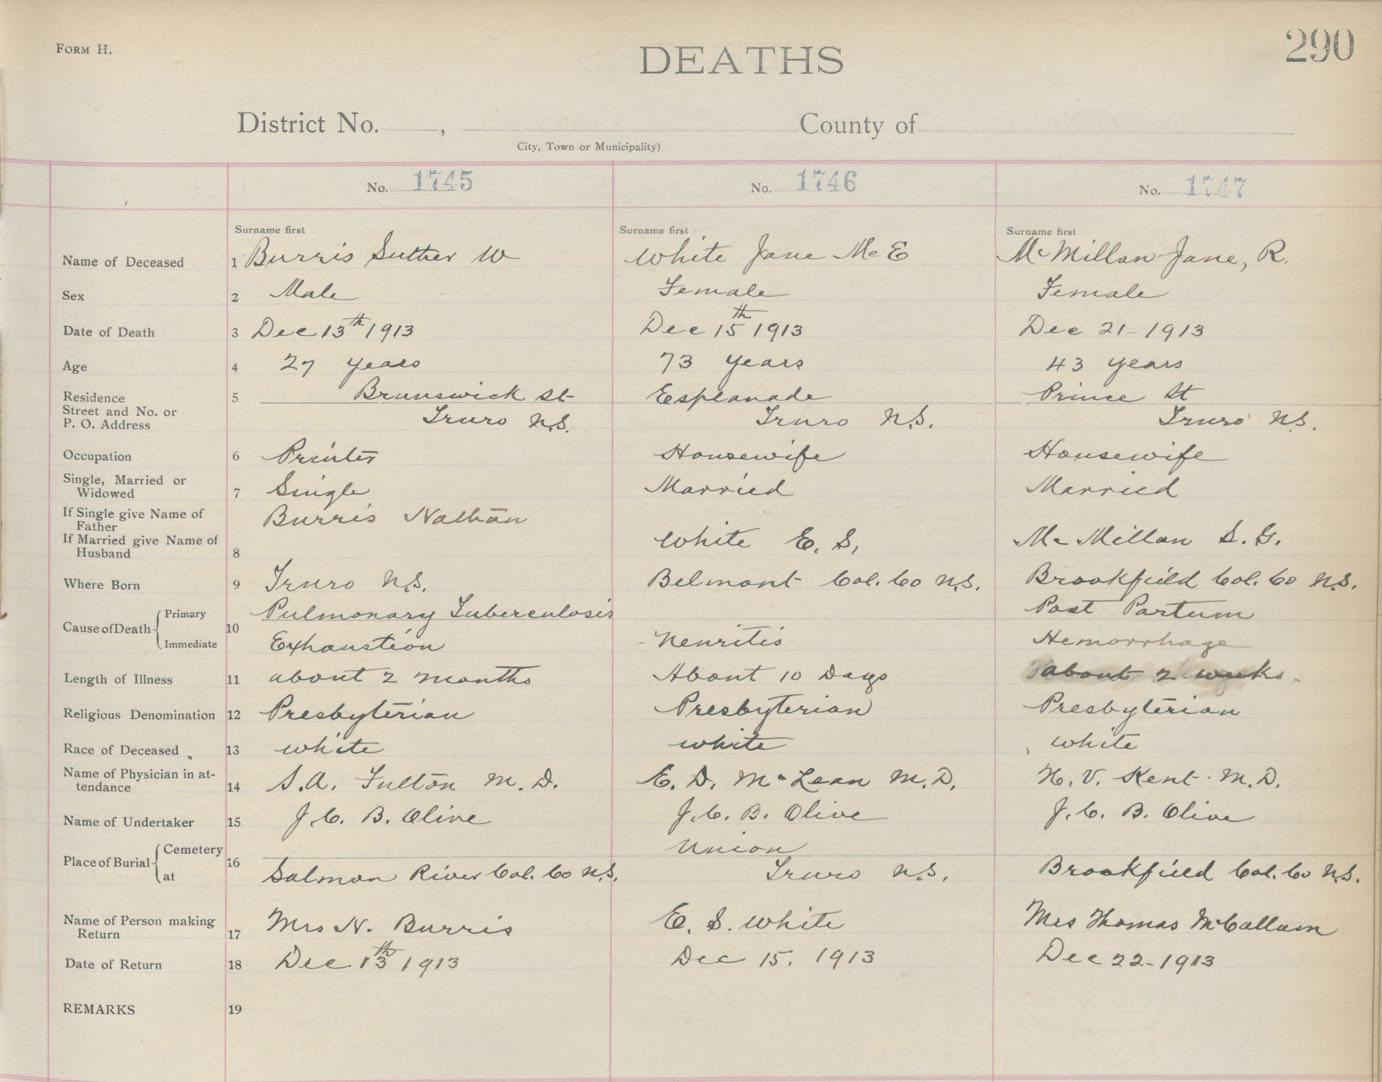 FORM H.
290
DEATHS
District No. , County of
City, Town or Municipality)
No. 1745 No. 1746 No. 1747
Surname first Surname first Surname first
Name of Deceased 1 Burris Suther W White Jane McE McMillan Jane, R.
Sex 2 Male Female Female
Date of Death 3 Dec 13th 1913 Dec 15th 1913 Dec 21-1913
Age 4 27 years 73 years 43 years
Residence 5 Brunswick St Esplanade Prince St
Street and No. or
P. O. Address Truro N.S. Truro N.S. Truro N.S.
Occupation 6 Printer Housewife Housewife
Single, Married or
Widowed 7 Single Married Married
If Single give Name of
Father Burris Nathan
If Married give Name of White E. S. McMillan S. G.
Husband 8
Where Born 9 Truro N.S. Belmont Col. Co N.S. Brookfield Col. Co N.S.
Primary Pulmonary Tuberculosis Post Partum
Cause of Death 10
Immediate Exhaustion Neuritis Hemorrhage
Length of Illness 11 about 2 months About 10 Days about 2 weeks
Religious Denomination 12 Presbyterian Presbyterian Presbyterian
Race of Deceased 13 white white white
Name of Physician in at-
tendance 14 S.A. Fulton M.D. E. D. McLean M.D. H. V. Kent M.D.
Name of Undertaker 15 J. C. B. Olive J. C. B. Olive J. C. B. Olive
Cemetery Union
Place of Burial 16
at Salmon River Col. Co N.S. Truro N.S. Brookfield Col. Co N.S.
Name of Person making
Return 17 Mrs N. Burris E. S. White Mrs Thomas McCallum
Date of Return 18 Dec 13th 1913 Dec 15. 1913 Dec 22-1913
REMARKS 19